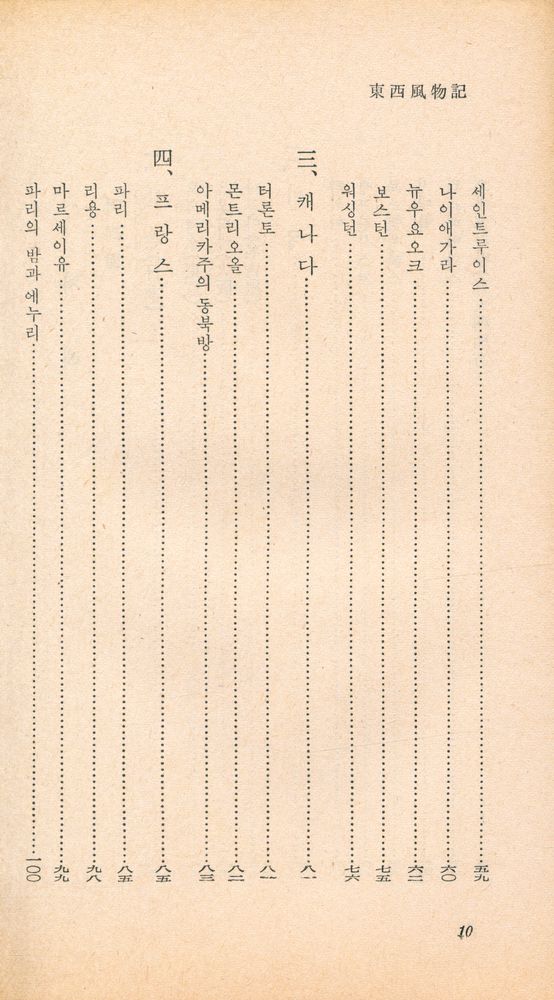 東西風物記
세인트루이스……五九
나이애가라……六〇
뉴우요오크……六二
보스턴……七五
워싱턴……七六
三、캐나다……八一
터론토……八一
몬트리오올……八二
아메리카주의 동북방……八三
四、프랑스……八五
파리……八五
리용……九八
마르세이유……九九
파리의 밤과 에누리……一〇〇
10